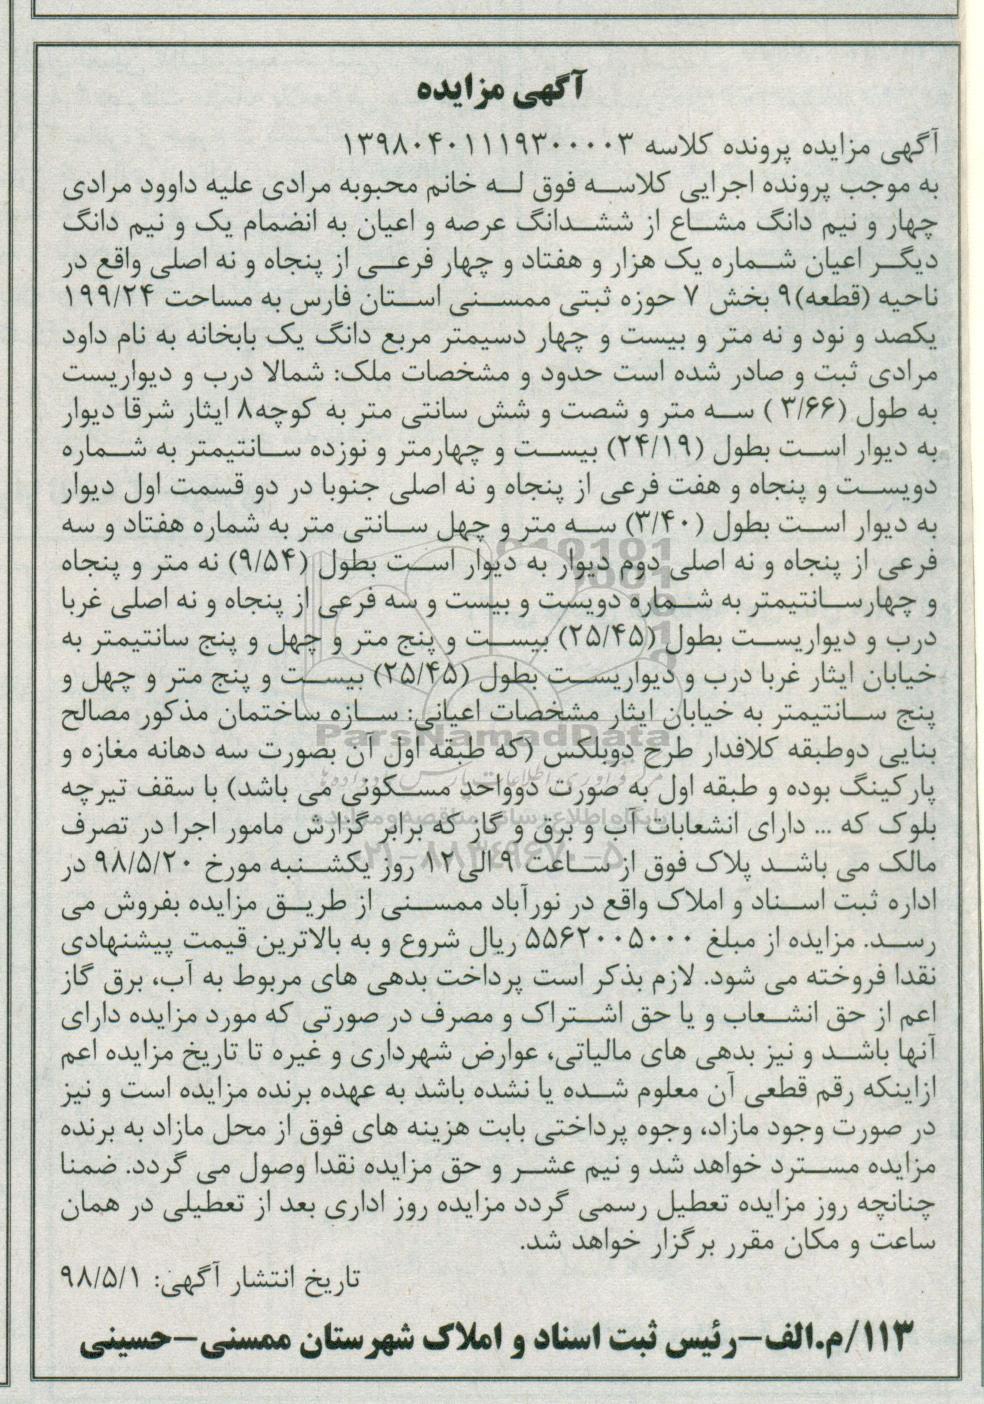 آگهی مزایده
آگهی مزایده پرونده کلاسه ۱۳۹۸۰۴۰۱۱۱۹۳۰۰۰۰۳
به موجب پرونده اجرایی کلاسه فوق له خانم محبوبه مرادی علیه داوود مرادی
چهار و نیم دانگ مشاع از ششدانگ عرصه و اعیان به انضمام یک و نیم دانگ
دیگر اعیان شماره یک هزار و هفتاد و چهار فرعی از پنجاه و نه اصلی واقع در
ناحیه (قطعه)۹ بخش ۷ حوزه ثبتی ممسنی استان فارس به مساحت ۱۹۹/۲۴
یکصد و نود و نه متر و بیست و چهار دسیمتر مربع دانگ یک بابخانه به نام داود
مرادی ثبت و صادر شده است حدود و مشخصات ملک: شمالا درب و دیواریست
به طول (۳/۶۶ ) سه متر و شصت و شش سانتی متر به کوچه۸ ایثار شرقا دیوار
به دیوار است بطول (۲۴/۱۹) بیست و چهارمتر و نوزده سانتیمتر به شماره
دویست و پنجاه و هفت فرعی از پنجاه و نه اصلی جنوبا در دو قسمت اول دیوار
به دیوار است بطول (۳/۴۰) سه متر و چهل سانتی متر به شماره هفتاد و سه
فرعی از پنجاه و نه اصلی دوم دیوار به دیوار است بطول (۹/۵۴) نه متر و پنجاه
و چهارسانتیمتر به شماره دویست و بیست و سه فرعی از پنجاه و نه اصلی غربا
درب و دیواریست بطول (۲۵/۴۵) بیست و پنج متر و چهل و پنج سانتیمتر به
خیابان ایثار غربا درب و دیواریست بطول (۲۵/۴۵) بیست و پنج متر و چهل و
پنج سانتیمتر به خیابان ایثار مشخصات اعیانی: سازه ساختمان مذکور مصالح
بنایی دوطبقه کلافدار طرح دوبلکس (که طبقه اول آن بصورت سه دهانه مغازه و
پارکینگ بوده و طبقه اول به صورت دوواحد مسکونی می باشد) با سقف تیرچه
بلوک که ... دارای انشعابات آب و برق و گاز که برابر گزارش مامور اجرا در تصرف
مالک می باشد پلاک فوق از ساعت ۹ الی۱۲ روز یکشنبه مورخ ۹۸/۵/۲۰ در
اداره ثبت اسناد و املاک واقع در نورآباد ممسنی از طریق مزایده بفروش می
رسد. مزایده از مبلغ ۵۵۶۲۰۰۵۰۰۰ ریال شروع و به بالاترین قیمت پیشنهادی
نقدا فروخته می شود. لازم بذکر است پرداخت بدهی های مربوط به آب، برق گاز
اعم از حق انشعاب و یا حق اشتراک و مصرف در صورتی که مورد مزایده دارای
آنها باشد و نیز بدهی های مالیاتی، عوارض شهرداری و غیره تا تاریخ مزایده اعم
ازاینکه رقم قطعی آن معلوم شده یا نشده باشد به عهده برنده مزایده است و نیز
در صورت وجود مازاد، وجوه پرداختی بابت هزینه های فوق از محل مازاد به برنده
مزایده مسترد خواهد شد و نیم عشر و حق مزایده نقدا وصول می گردد. ضمنا
چنانچه روز مزایده تعطیل رسمی گردد مزایده روز اداری بعد از تعطیلی در همان
ساعت و مکان مقرر برگزار خواهد شد.
تاریخ انتشار آگهی: ۹۸/۵/۱
۱۱۳/م.الف-رئیس ثبت اسناد و املاک شهرستان ممسنی-حسینی
ParsNamadData